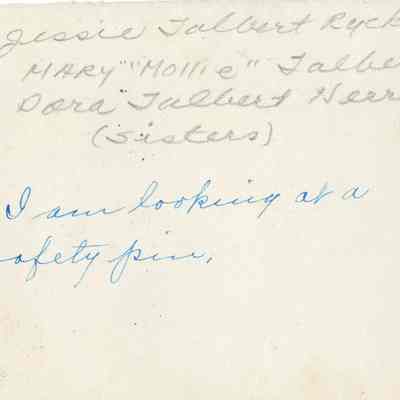 Jessie Talbert Ryck
MARY "Mollie" Talbe
Dora Talbert Herr
(Sisters)
I am looking at a
afety pin.